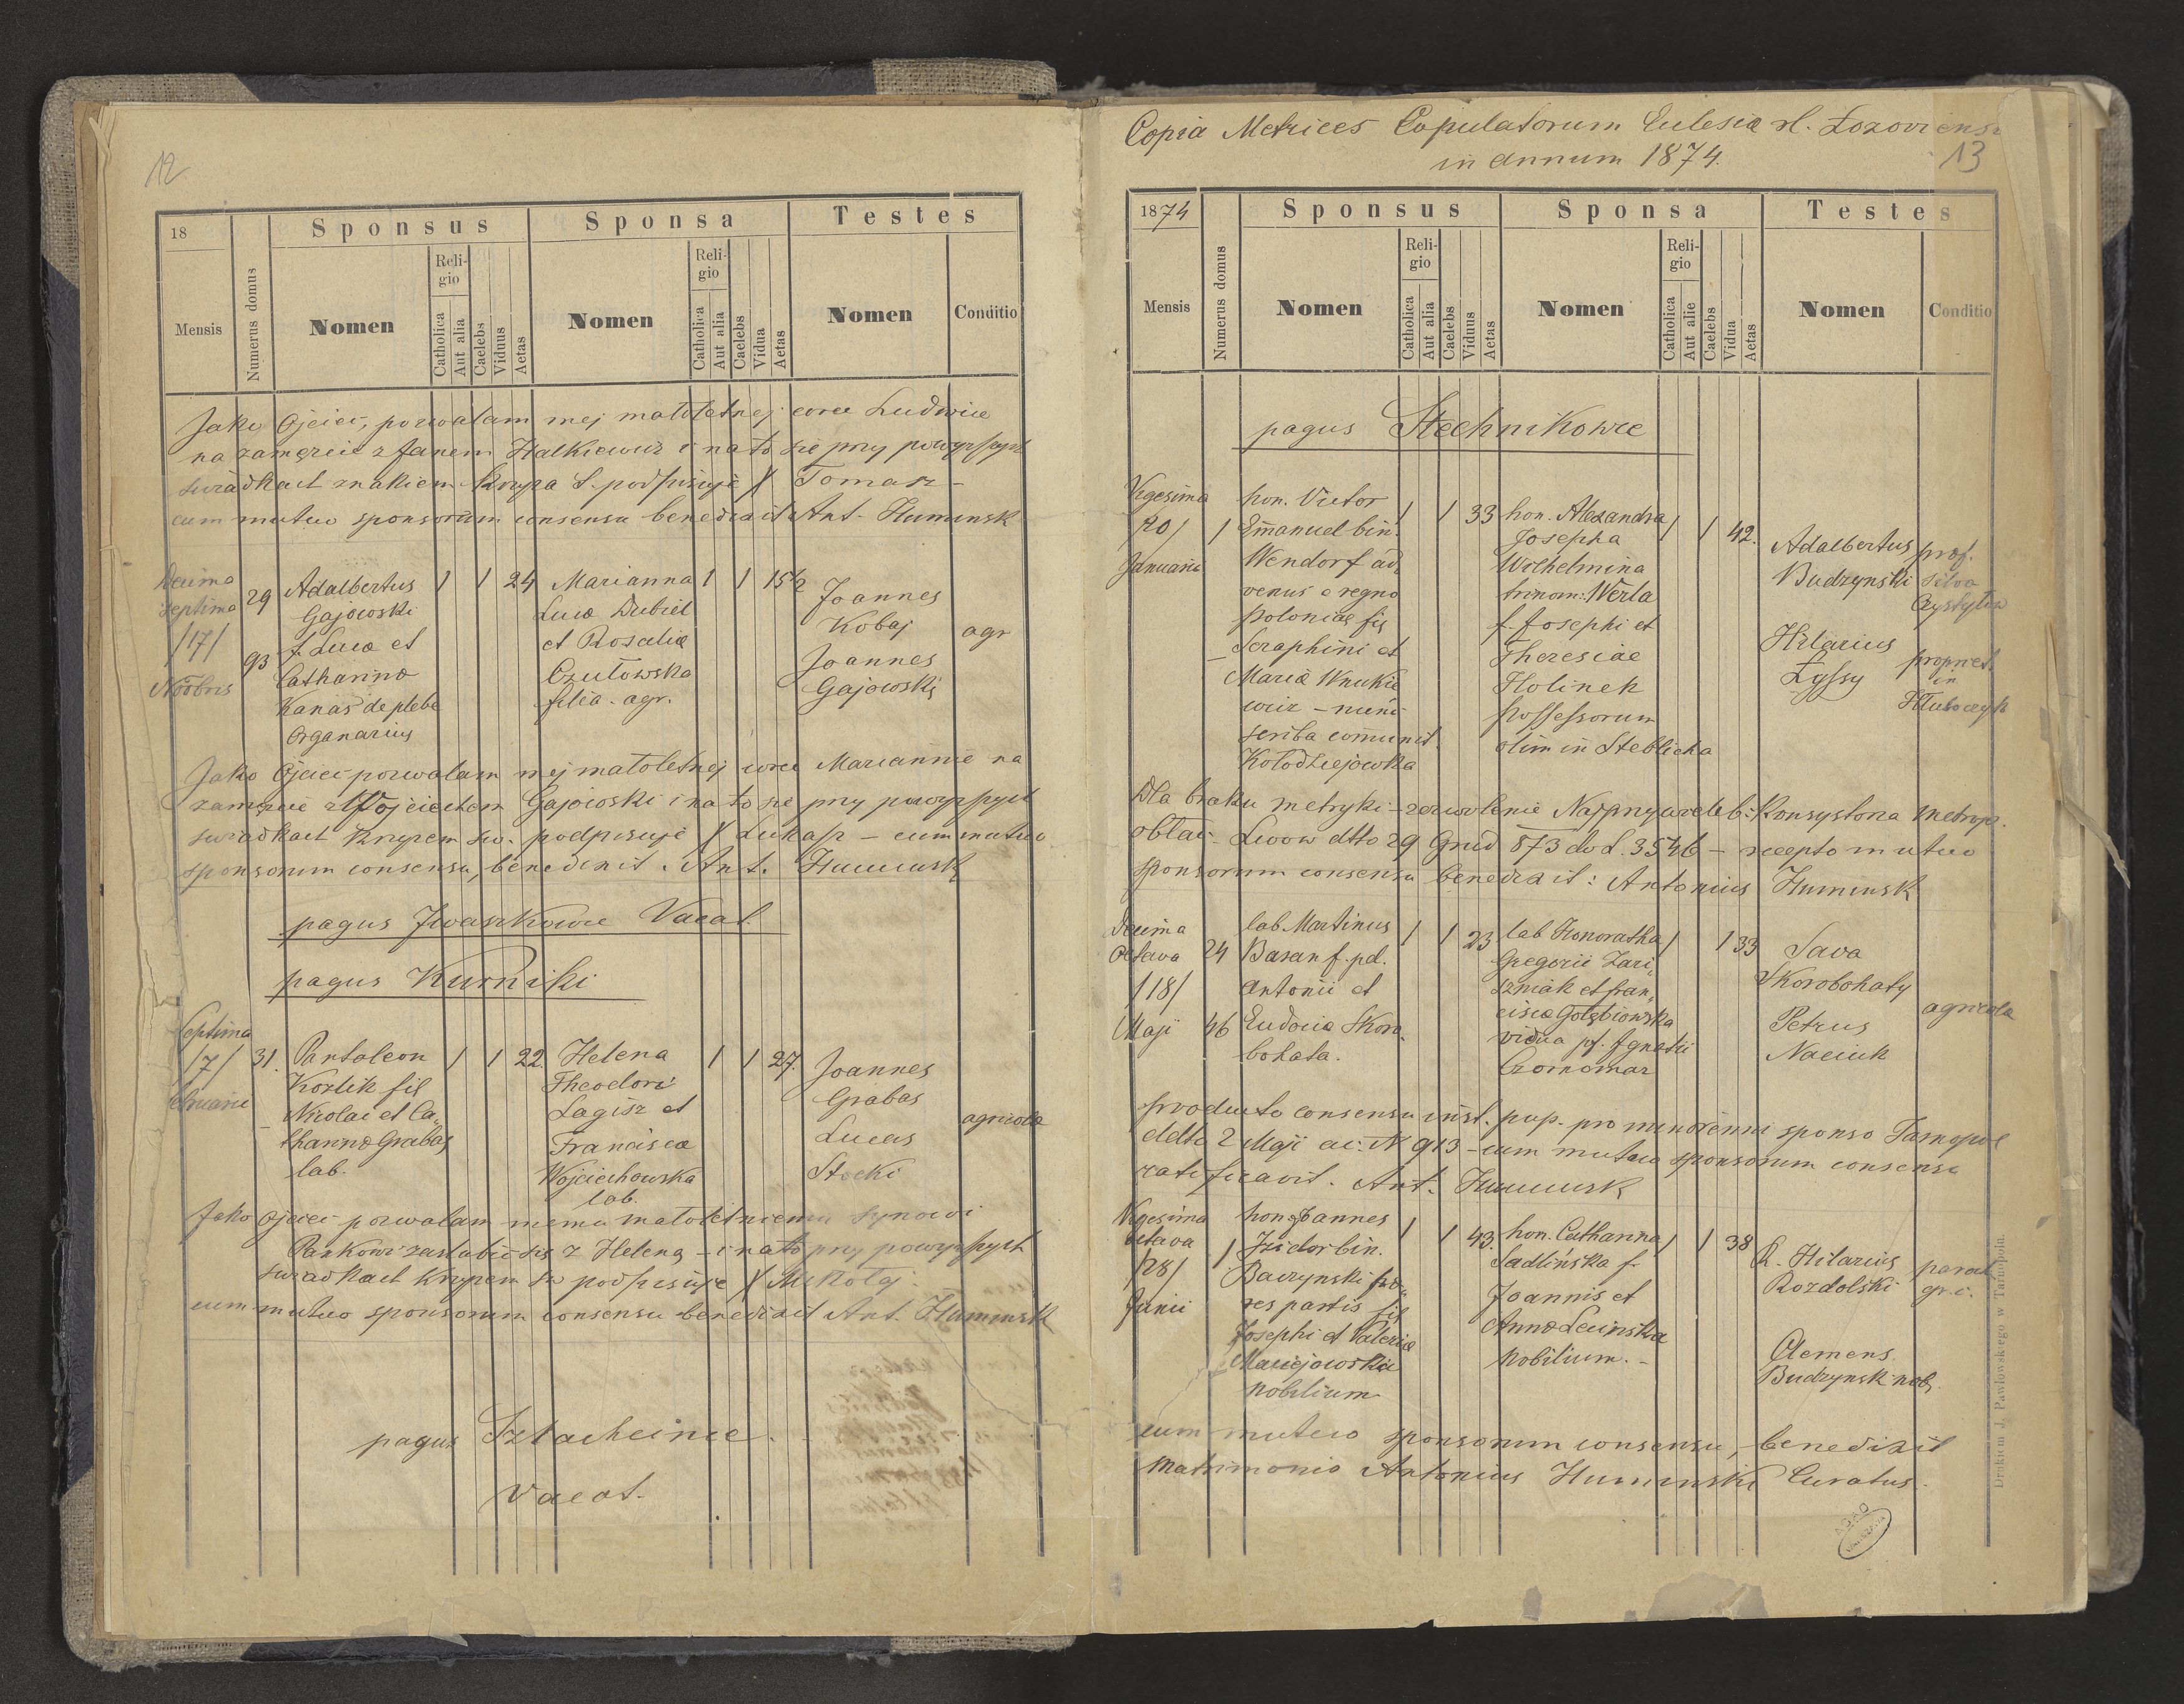 12
18
Sponsus
Sponsa
Testes
Mensis
Numerus domus
Nomen
Religio
Catholica
Aut alia
Caelebs
Viduus
Aetas
Nomen
Religio
Catholica
Aut alia
Caelebs
Vidua
Aetas
Nomen
Conditio
Jako Ojciec, pozwalam mej małoletnej córce Ludwice
na zamęzcie z Janem Halkiewicz i na to się przy powyrszych
świadkach znakiem Krzyża S. podpisuję X Tomasz -
cum mutuo sponsorum consensu benedixit Ant. Huminsk
Decima septima /17/ Nôbris
29
93
Adalbertus 1 1 24 Marianna 1 1 15½ Joannes
Gajowski Luca Dubiel Kobaj agr
f. Luca et et Rosalia Joannes
Catharina Czułowska Gajowski
Kanas de plebe filia agr.
Organarius
Jako Ojciec pozwalam mej małoletnej córce Mariannie na
zamęzcie z Wojciechem Gajowski i na to się przy powyrszych
świadkach Krzyżem św. podpisuje X Łukasz - cum mutuo
sponsorum consensu, benedixit. Ant. Huminsk
pagus Iwaszkowce Vacat.
pagus Kurniki
Septima /7/
31. Pantaleon 1 1 22. Helena 1 1 27. Joannes
Kozlik fil Theodori Grabas
Nicolai et Ca- Lagisz et Lucas agricola
tharina Grabas Francisca Stocki
lab. Wojciechowska
lab.
Jako Ojciec pozwalam memu małoletniemu synowi
Pankowi zaslubić się z Heleną - i na to przy powyrszych
świadkach Krzyżem św podpisuje X Mikołaj.
cum mutuo sponsorum consensu benedixit Ant. Huminsk
pagus Szlachcince.
Vacat.
Copia Metrices Copulatorum Eclesia rl. Łozoviensi
in annum 1874.
13
1874
Sponsus
Sponsa
Testes
Mensis
Numerus domus
Nomen
Religio
Catholica
Aut alia
Caelebs
Viduus
Aetas
Nomen
Religio
Catholica
Aut alie
Caelebs
Vidua
Aetas
Nomen
Conditio
pagus Stechnikowce
Vigesima /20/ Januarii
1 hon. Victor 1 1 33 hon. Alexandra 1 1 42. Adalbertus prof.
Emanuel bin. Josepha Budzynski silva
Wendorf ad- Wilhelmina
venus e regno trinom: Werla
Poloniae fil f. Josephi et Hilarius propriet.
Seraphini et Theresiae Łyssy in
Maria Wnukie- Holinek
wicz - nunc possessorum
scriba comunit. olim in Steblicka
Kołodziejowka
Dla braku metryki - zezwolenie Najprzywieleb: Konsystorza metrop.
obłac. Lwow dtto 29 Grud 873 do L. 3546 - recepto mutuo
sponsorum consensu benedixit: Antonius Huminsk
Decima octava /18/ Maji
24
46
lab. Martinus 1 1 23 lab Honoratha 1 1 33 Sava
Basan f. pd. Gregorii Zari- Skorobohaty
Antonii et szniak et Fran- agricola
Eudocia Skoro- cisca Gołębiowska Petrus
bohata. vidua pf. Ignatii Naciuk
Czornomaz
producto consensu inst. pup. pro minorenni sponso Tarnopol
ddto 2 Maji ac. N 913 - cum mutuo sponsorum consensu
ratificavit. Ant. Huminsk
Vigesima octava /28/ Junii
1 hon. Joannes 1 1 43. hon. Catharina 1 1 38 R. Hilarius paroch
Isidor bin. Sadlińska f. Rozdolski gr. c.
Baczynski
res partis fil Joannis et
Josephi et Valeria Anna Lecinska Clemens
Maciejowskie nobilium. - Budzynsk nob.
nobilium
cum mutuo sponsorum consensu, benedixit
Matrimonio Antonius Huminski Curatus.
Drukiem J. Pawłowskiego w Tarnopolu.